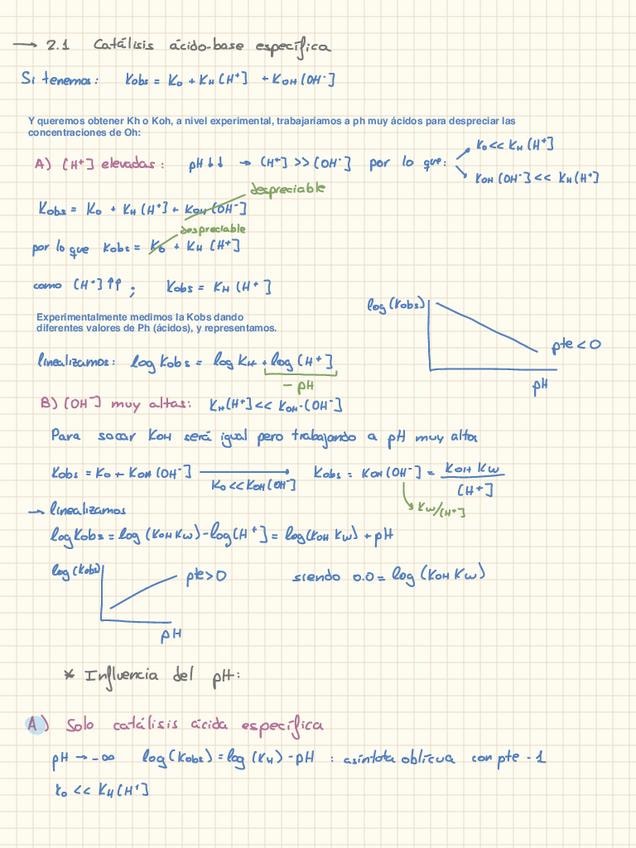 → 2.1 Catálisis ácido-base específica
Si tenemos: Kobs = Ko + KH [H⁺] + KOH [OH⁻]
Y queremos obtener Kh o Koh, a nivel experimental, trabajaríamos a ph muy ácidos para despreciar las
concentraciones de Oh:
Ko << KH [H⁺]
A) [H⁺] elevadas: pH↓↓ → [H⁺] >> [OH⁻] por lo que:
KOH [OH⁻] << KH [H⁺]
despreciable
Kobs = Ko + KH [H⁺] + KOH [OH⁻]
despreciable
por lo que Kobs = Ko + KH [H⁺]
como [H⁺]↑↑ ; Kobs = KH [H⁺]
Experimentalmente medimos la Kobs dando
diferentes valores de Ph (ácidos), y representamos.
log (Kobs)
pte < 0
pH
linealizamos: log Kobs = log KH + log [H⁺]
- pH
B) [OH⁻] muy altas: KH [H⁺] << KOH · [OH⁻]
Para sacar KOH será igual pero trabajando a pH muy altos
Kobs = Ko + KOH [OH⁻] → Kobs = KOH [OH⁻] = KOH Kw / [H⁺]
Ko << KOH [OH⁻]
Kw/[H⁺]
→ linealizamos
log Kobs = log (KOH Kw) - log [H⁺] = log (KOH Kw) + pH
log (Kobs) pte > 0 siendo o.o = log (KOH Kw)
pH
* Influencia del pH:
A) Solo catálisis ácida específica
pH → -∞ log (Kobs) = log (KH) - pH : asíntota oblicua con pte - 1
Ko << KH [H⁺]